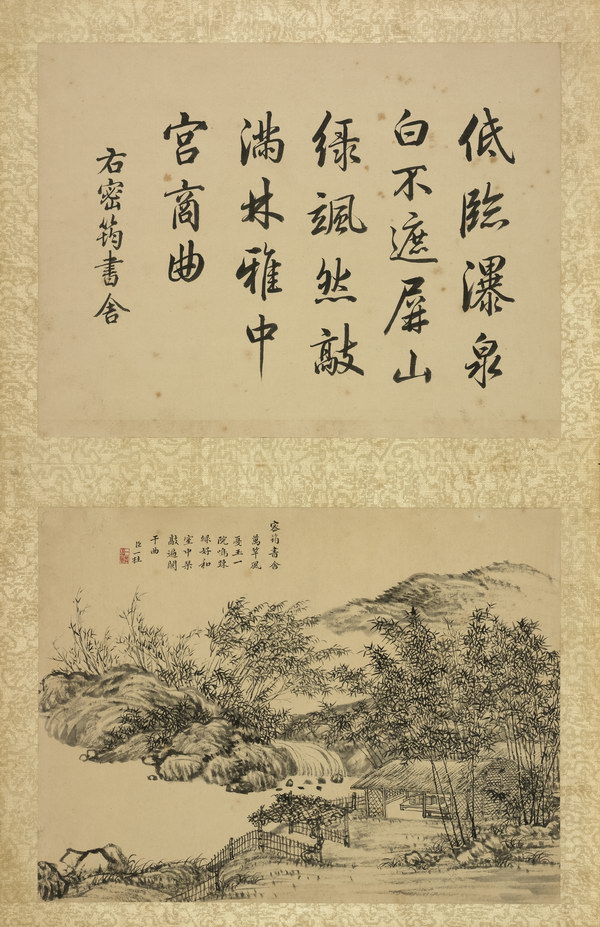 低臨瀑泉
白不遮屏山
綠颯然敲
滿林雅中
宮商曲
右密筠書舍
密筠書舍
萬竿風
戛玉一
院鳴球
綠好和
室中琹
敲遍闌
干曲
臣一桂